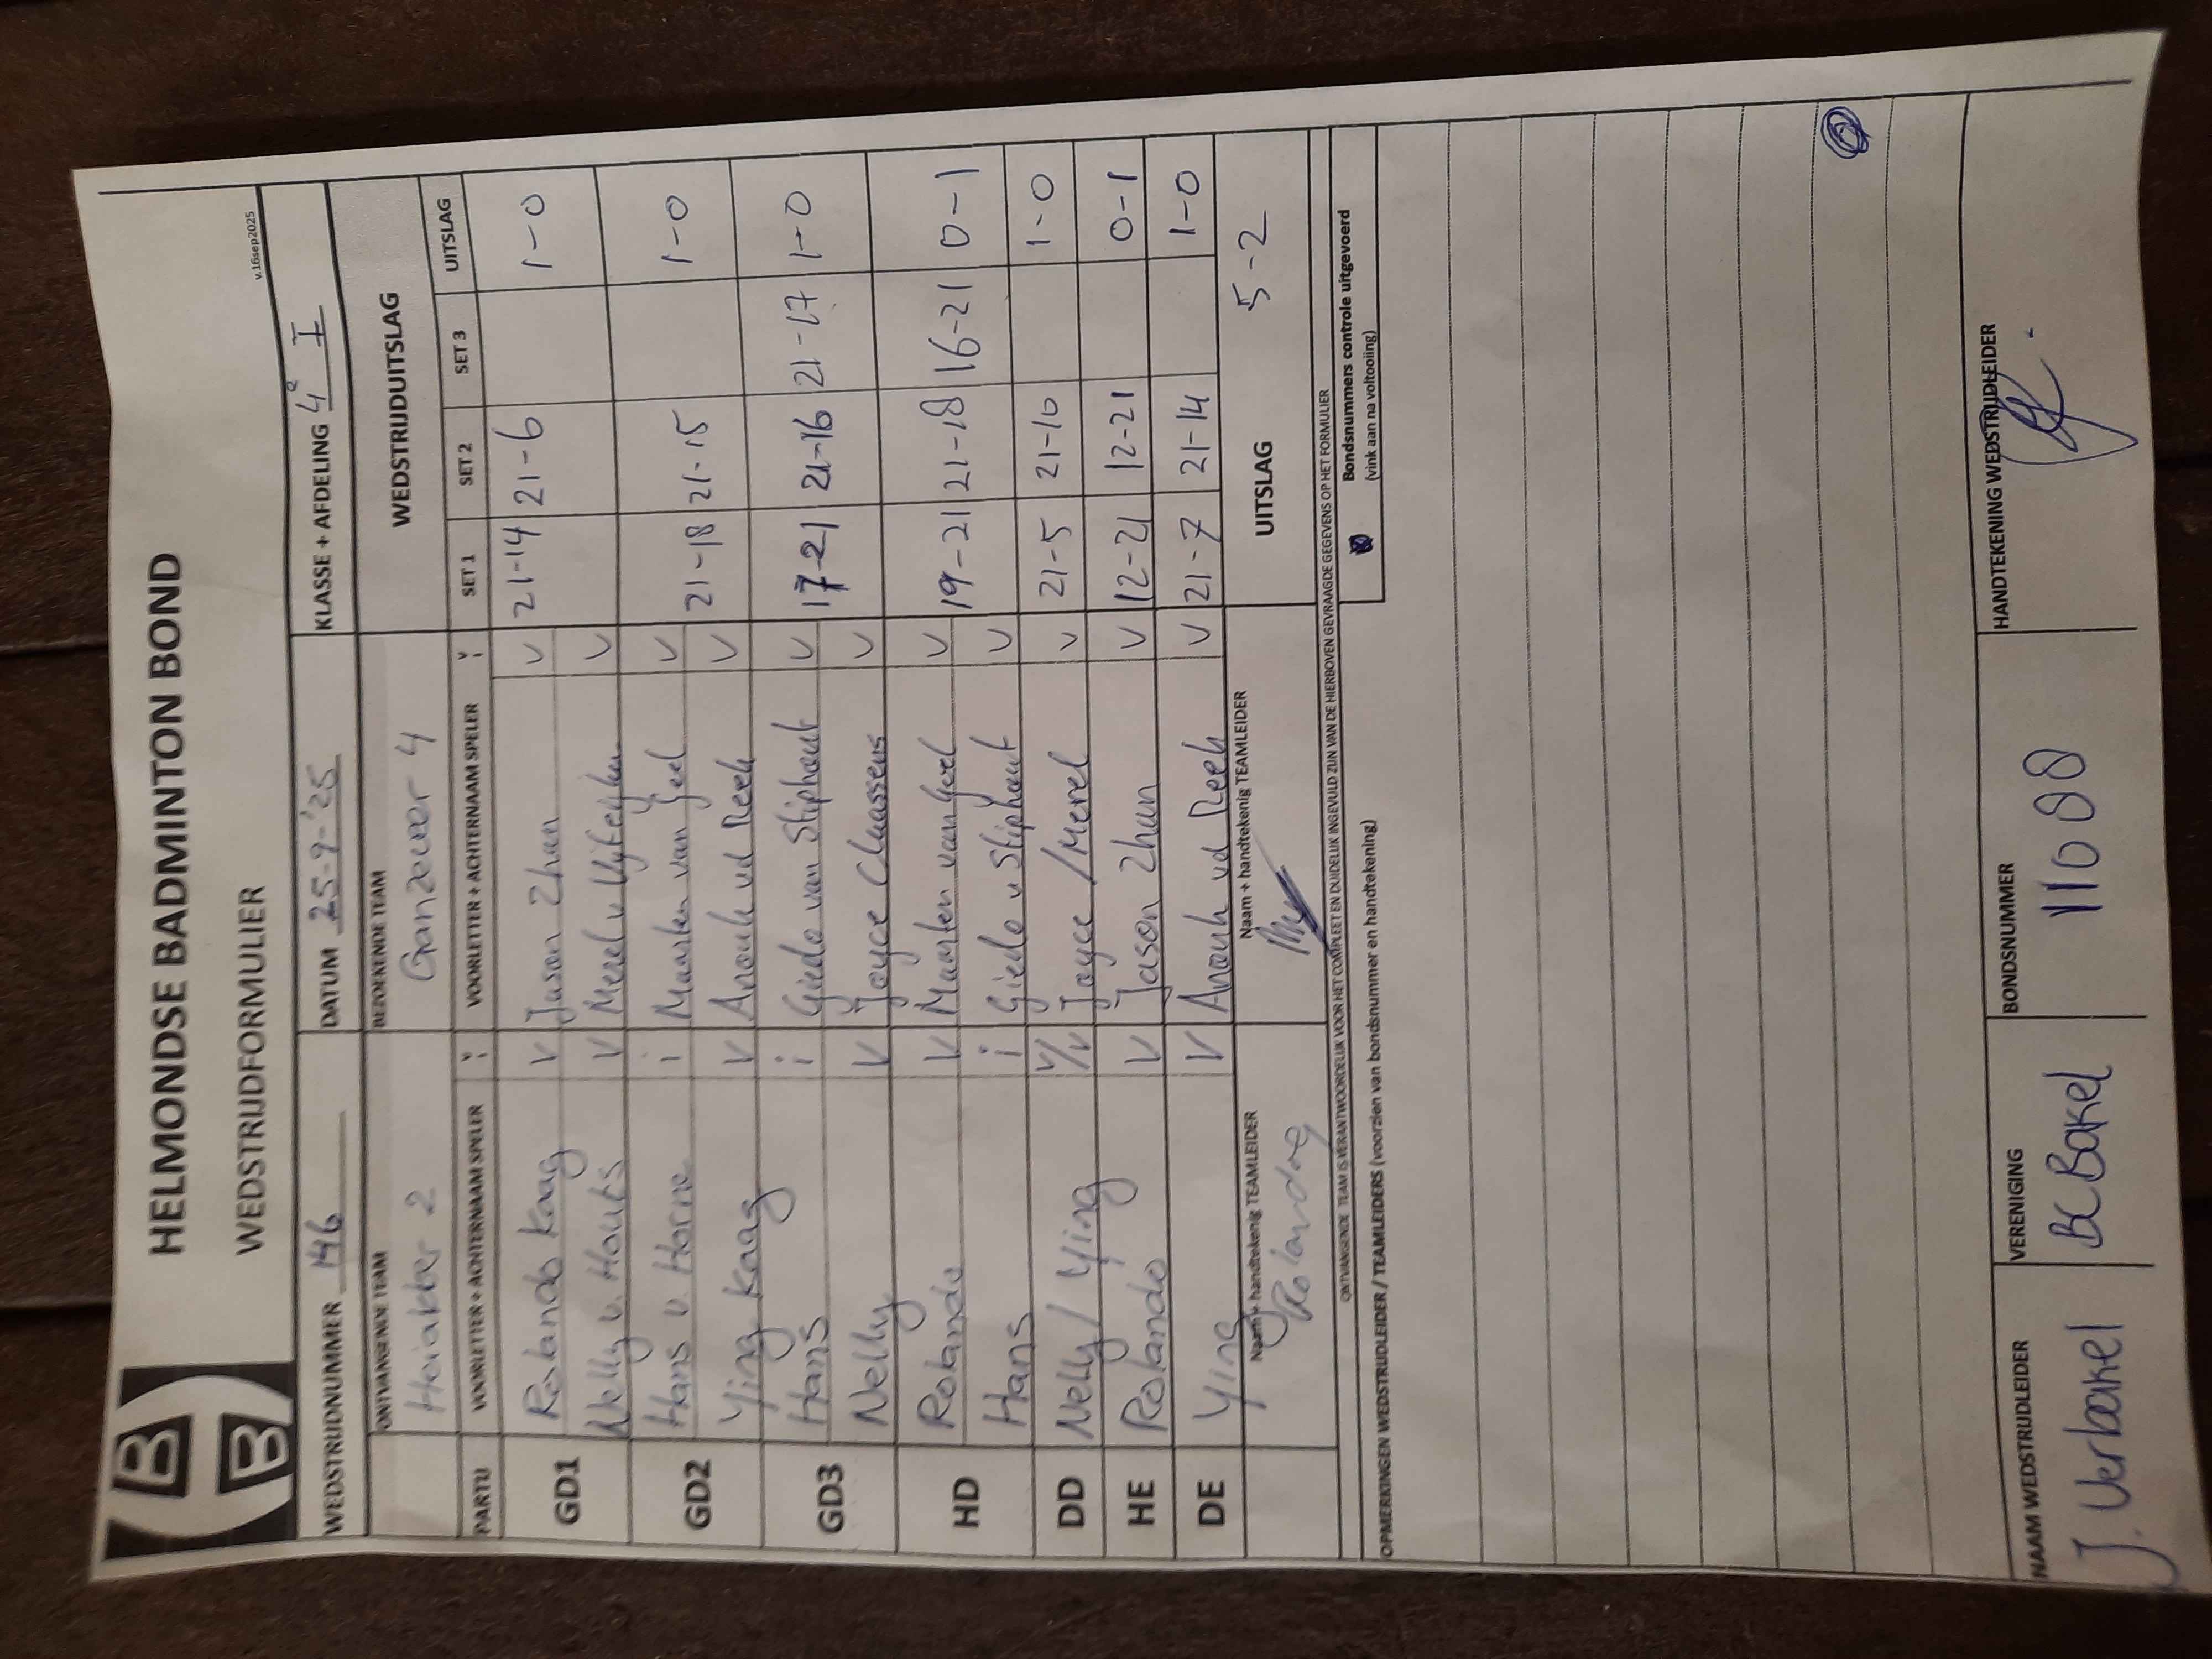 HELMONDSE BADMINTON BOND
WEDSTRIJDFORMULIER
v.16sep2025
WEDSTRIJDNUMMER 146 DATUM 25-9-'25 KLASSE + AFDELING 4e I
ONTVANGENDE TEAM BEZOEKENDE TEAM WEDSTRIJDUITSLAG
Heiakker 2 Ganzeveer 4
PARTIJ VOORLETTER + ACHTERNAAM SPELER V I VOORLETTER + ACHTERNAAM SPELER V I SET 1 SET 2 SET 3 UITSLAG
GD1 Rolando Kaag V Jason Zhan V 21-14 21-6 1-0
Nelly v. Houts V Merel v V
GD2 Hans v. Horne i Maarten van Geel V 21-18 21-15 1-0
Ying Kaag V Anouk vd Reek V
GD3 Hans i Giedo van Stiphout V 17-21 21-16 21-17 1-0
Nelly V Joyce Claassens V
HD Rolando V Maarten van Geel V 19-21 21-18 16-21 0-1
Hans i Giedo v Stiphout V
DD Nelly / Ying V/V Joyce / Merel V 21-5 21-10 1-0
HE Rolando V Jason Zhan V 12-21 12-21 0-1
DE Ying V Anouk vd Reek V 21-7 21-14 1-0
Naam + handtekenig TEAMLEIDER Naam + handtekenig TEAMLEIDER UITSLAG 5-2
Rolando
ONTVANGENDE TEAM IS VERANTWOORDELIJK VOOR HET COMPLEET EN DUIDELIJK INGEVULD ZIJN VAN DE HIERBOVEN GEVRAAGDE GEGEVENS OP HET FORMULIER
Bondsnummers controle uitgevoerd
(vink aan na voltooiing)
OPMERKINGEN WEDSTRIJDLEIDER / TEAMLEIDERS (voorzien van bondsnummer en handtekening)
NAAM WEDSTRIJDLEIDER VERENIGING BONDSNUMMER HANDTEKENING WEDSTRIJDLEIDER
J. Verbakel BC Bakel 11088